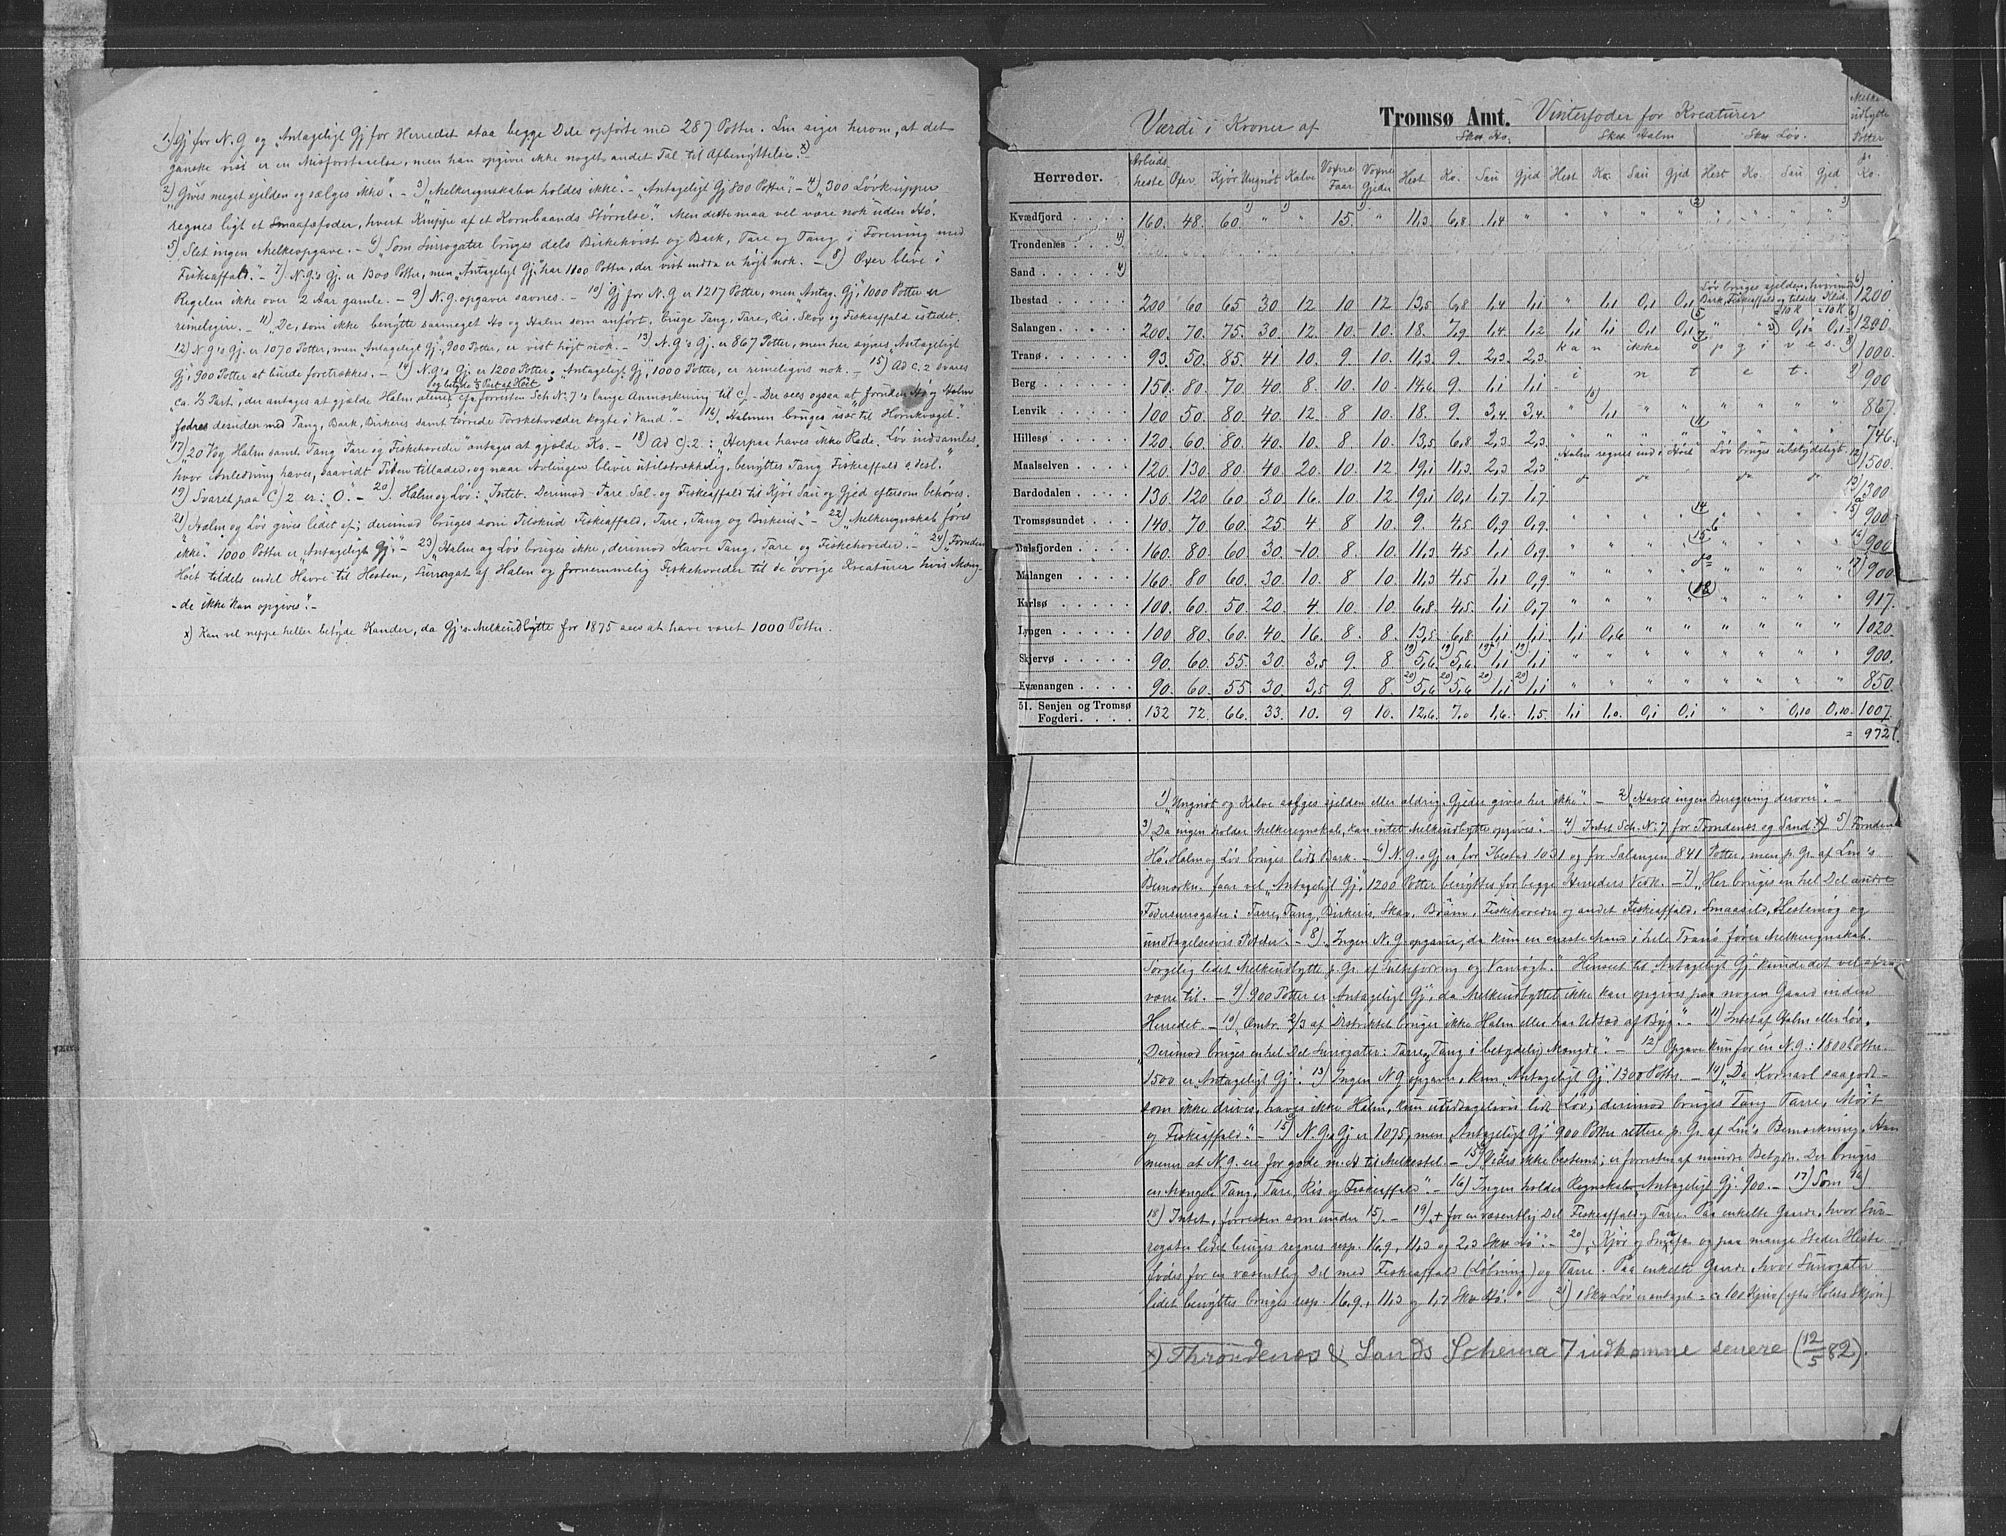 1) Gj for N. G og „Antageligt Gj for Herredet staa begge Dele opførte med 287 Potter. Lm siger herom, at det
ganske vist er en Misforstaaelse, men han opgiver ikke noget andet Tal til Afbenyttelse. x)
2) „Gives meget sjelden og sælges ikke". - 3) „Melkeregnskaber holdes ikke". - „Antageligt Gj 800 Potter"; - 4) „300 Løvknipper
regnes ligt et Smaafsfoder, hvert Knippe af et Kornbaands Størrelse." Men dette maa vel være nok uden Hø.
5) Slet ingen Melkeopgave. - 6) „Som Surrogater bruges dels Birkekvist og Bark, Tare og Tang i Forening med
Fiskeaffald." - 7) N. G's Gj. er 1300 Potter, men „Antageligt Gj." har 1100 Potter, der vist endda er høit nok. - 8) Oxer blive i
Regelen ikke over 2 Aar gamle. - 9) N. G. opgaver savnes. - 10) Gj for N. G er 1217 Potter, men „Antag. Gj", 1000 Potter er
rimeligere. - 11) „De, som ikke benytte saameget Hø og Halm som anført, bruge Tang, Tare, Ris, Skav og Fiskeaffald istedet.
12) N G's Gj. er 1070 Potter, men „Antageligt Gj", 900 Potter, er vist høit nok. - 13) N. G's Gj. er 867 Potter, men her synes „Antageligt
Gj", 900 Potter at burde foretrækkes. - 14) N. G's Gj. er 1200 Potter; „Antageligt Gj", 1000 Potter, er rimeligvis nok. - 15) Ad C. 2 svares
og betyde ⅓ Part af Høet
„ca. ⅓ Part", der antages at gjælde Halm alene, cfr forresten Sch N. 7's lange Anmærkning til C). - Der sees ogsaa at „foruden Hø og Halm
fodres desuden med Tang, Bark, Birkeris samt tørrede Torskehoveder kogte i Vand". - 16) „Halmen bruges især til Hornkvæget."
17) „20 Vog Halm samt Tang Tare og Fiskehoveder" antages at gjælde Ko. - 18) Ad C. 2: „Herpaa haves ikke Rede. Løv indsamles,
hvor Anledning haves, saavidt Tiden tillader, og naar Avlingen bliver utilstrækkelig, benyttes Tang Fiskeaffald o desl."
19) Svaret paa C) 2 er: „0". - 20) „Halm og Løv: „Intet. Derimod Tare Sal- og Fiskeaffald til Kjør, Sau og Gjed eftersom behøves.
21) „Halm og Løv gives lidet af; derimod bruges som Tilskud Fiskeaffald, Tare, Tang og Birkeris". - 22) „Melkeregnskab føres
ikke". 1000 Potter er „Antageligt Gj". - 23) „Halm og Løv bruges ikke, derimod Havre Tang, Tare og Fiskehoveder." - 24) „Foruden
Høet tildels endel Havre til Hesten, Surrogat af Halm og fornemmelig Fiskehoveder til de øvrige Kreaturer hvis Mæng-
-de ikke kan opgives". -
x) Kan vel neppe heller betyde Kander, da Gj's Melkeudbytte for 1875 sees at have været 1000 Potter.
Værdi i Kroner af Tromsø Amt. Vinterfoder for Kreaturer
Sk℔ Hø. Sk℔ Halm Sk℔ Løv. Melkeudbytte Potter pr Ko.
Herreder. Arbeidsheste Oxer. Kjør Ungnøt Kalve Voxne Faar Voxne Gjeder Hest Ko. Sau Gjed Hest Ko. Sau Gjed Hest Ko. Sau Gjed
Kvædfjord . . . . 160. 48. 60. 1) " 1) " 15. 1) " 11,3 6,8 1,4 " " " " " 2) " " " " 3)
Trondenes . . . 4)
Sand . . . . . 4)
Løv bruges sjelden, hvorimod
Bark, Fiskeaffald og tildels Klid.
Ibestad . . . . . 200 60 65 30 12 10 12 13,5 6,8 1,4 1,1 " 1,1 0,1 0,1 6) 1200
Salangen . . . . 200. 70. 75. 30. 12. 10. 10. 18. 7,9 1,4 1,2 1,1 1,1 0,1 0,1 5) " " 21) 0,1 0,1 6) 1200
Tranø . . . . . 93. 50. 85. 41. 10. 9. 10. 11,3 9. 2,3 2,3 kan ikke 7) opgives. 8) 1000.
Berg . . . . . 150. 80. 70 40. 8. 10. 10. 14,6 9. 1,1 1,1 intet. 9) 900
Lenvik . . . . . 100 50. 80. 40. 12 8 10. 18. 9. 3,4 3,4 " 10) 1,1 " " " " " " 867.
Hillesø . . . . . 120. 60. 80. 40. 10. 8 10. 13,5 6,8 2,3 2,3 " " " " 11) " " " " 746.
Maalselven . . . 120. 130. 80. 40. 20. 10. 12 19,1 11,3 2,3 2,3 Halm regnes ind i Høet Løv bruges ubetydeligt. 12) 1500.
Bardodalen . . . 130. 120 60. 30. 16. 10. 12 19,1 10,1 1,7 1,7 do do do do 13) 1300
Tromsøsundet . . 140. 70. 60. 25 4 8 10. 9. 4,5 0,9 0,9 " " " " 14) " " " " 15) a 900
Balsfjorden . . . 160. 80. 60. 30. 10. 8. 10. 11,3 4,5 1,1 0,9 " " " " 15 b " " " " 16) 900
Malangen . . . 160. 80. 60. 30. 10. 8 10. 11,3 4,5 1,1 0,9 " " " " do " " " " 17) 900
Karlsø . . . . . 100. 60. 50. 20 4. 10. 10. 6,8 4,5 1,1 0,7 " " " " 18 " " " " 917.
Lyngen . . . . . 100 80. 60. 40. 16. 8. 8. 13,5 6,8 1,1 1,1 1,1 0,6 " " " " " " 1020.
Skjervø . . . . . 90. 60. 55 30. 3,5 9. 8. 19) 5,6 19) 5,6 19) 1,1 19) 1,1 " " " " " " " " 900.
Kvænangen . . . . 90. 60. 55 30. 3,5 9. 8. 20) 5,6 20) 5,6 20) 1,1 20) 1,1 " " " " " " " " 850.
51. Senjen og Tromsø
Fogderi . . . . 132 72. 66. 33. 10. 9 10. 12,6 7,0 1,6 1,5 1,1 1,0 0,1 0,1 " " 0,10 0,10 1007.
= 972 l.
1) „Ungnøt og Kalve sælges sjelden eller aldrig. Gjeder gives her ikke". - 2) „Haves ingen Beregning derover". -
3) „Da ingen holder Melkeregnskab, kan intet Melkeudbytte opgives". - 4) Intet Sch. N: 7 for Trondenes og Sand. x) 5) „Foruden
Hø, Halm og Løv bruges lidt Bark. - 6) N. G. Gj er for Ibestad 1031 og for Salangen 841 Potter, men p. Gr. af Lm's
Bemærkn. faar vel „Antageligt Gj", 1200 Potter benyttes for begge Herreders Vedk. - 7) „Her bruges en hel Del andre
Fodersurrogater: Tarre, Tang, Birkeris, Skav, Brom, Fiskehoveder og andet Fiskeaffald, Smaasild, Hestemøg og
undtagelsesvis Poteter". - 8) „Ingen N. G opgaver, da kun en eneste Mand i hele Tranø fører Melkeregnskab.
Sørgelig lidet Melkeudbytte p. Gr. af Sultefooring og Vanrøgt." Henseet til „Antageligt Gj" kunde det vel
være til. - 9) 900 Potter er „Antageligt Gj", da Melkeudbyttet ikke kan opgives paa nogen Gaard inden
Herredet. - 10) „Omtr. 2/3 af Distriktet bruger ikke Halm eller har Udsæd af Byg". - 11) „Intet af Halm eller Løv.
Derimod bruges en hel Del Surrogater: Tarre, Tang i betydelig Mængde". - 12) Opgave kun for én N. G: 1800 Potter.
1500 er „Antageligt Gj". 13) Ingen N G opgaver, kun „Antageligt Gj" 1300 Potter. - 14) „Da Kornavl saagodt-
som ikke drives, haves ikke Halm, kun undtagelsesvis lidt Løv; derimod bruges Tang Tarre, Mort
og Fiskeaffald". - 15 a) N. G's Gj er 1075, men „Antageligt Gj" 900 Potter rettere p. Gr. af Lm's Bemærkning. Han
mener at N. G. ere for gode m. H. til Melkestel. - 15 b) „Vides ikke bestemt; er forresten af mindre Betydn. Der bruges
en Mængde Tang, Tare, Ris og Fiskeaffald". - 16) Ingen holder Regnskab. „Antageligt Gj". 900. - 17) Som 16)
18) Intet, forresten som under 15). - 19) „+ for en væsentlig Del Fiskeaffald og Tarre. Paa enkelte Gaarde, hvor Sur-
rogater lidet bruges regnes resp. 16,9, 11,3 og 2,3 Sk℔ Hø". - 20) „Kjør og Smaaf. og paa mange Steder Heste
fodes for en væsentlig Del med Fiskeaffald (Løbning) og Tarre. Paa enkelte Gaarde, hvor Surrogater
lidet benyttes bruges resp. 16,9, 11,3 og 1,7 Sk℔ Hø." - 21) 1 Sk℔ Løv er antaget = ca 100 Kjerv (efter Holsts Skjøn)
x) Throndenæs & Sands Schema 7 indkomne senere (12/5 82).